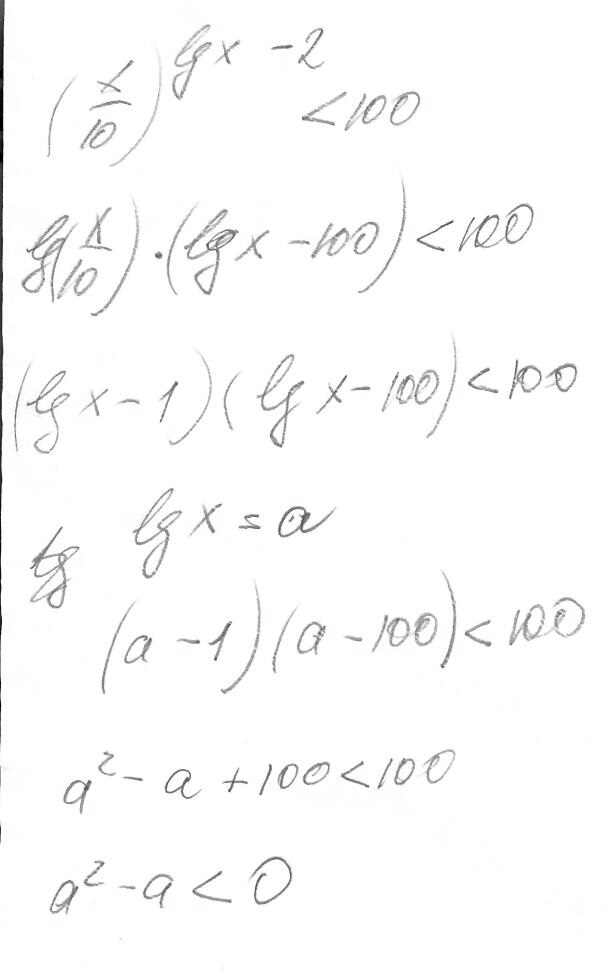 (x/10)^(lg x - 2) < 100
lg(x/10) · (lg x - 100) < 100
(lg x - 1)(lg x - 100) < 100
lg x = a
(a - 1)(a - 100) < 100
a² - a + 100 < 100
a² - a < 0